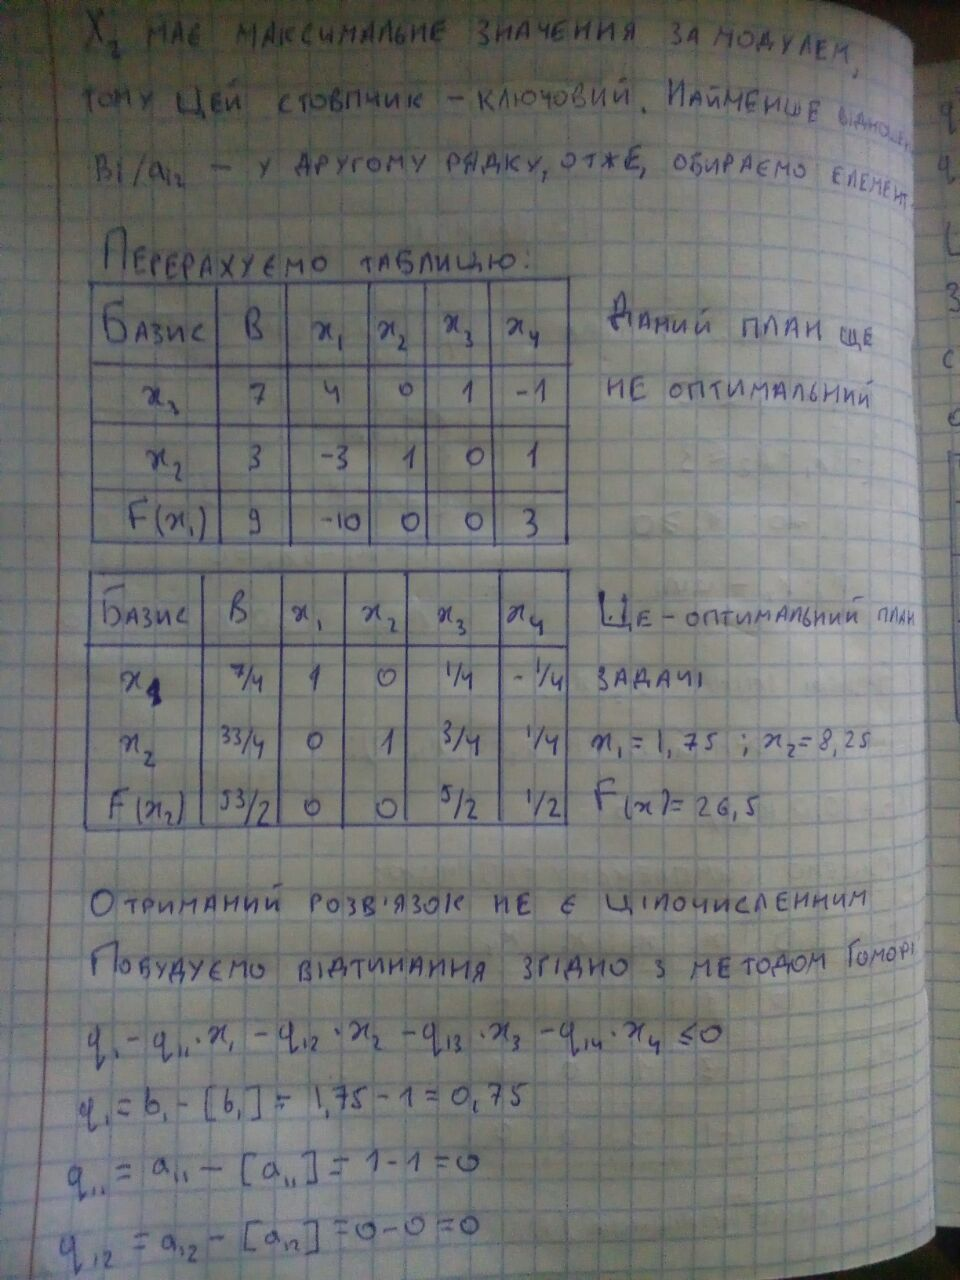 X₂ має максимальне значення за модулем,
тому цей стовпчик – ключовий. Найменше
Bi/ai2 – у другому рядку, отже, обираємо елемент
Перерахуємо таблицю:
Базис B x₁ x₂ x₃ x₄
x₃ 7 4 0 1 -1
x₂ 3 -3 1 0 1
F(x₁) 9 -10 0 0 3
Даний план ще
не оптимальний
Базис B x₁ x₂ x₃ x₄
x₁ 7/4 1 0 1/4 -1/4
x₂ 33/4 0 1 3/4 1/4
F(x₂) 53/2 0 0 5/2 1/2
Це – оптимальний план
задачі
x₁ = 1,75 ; x₂ = 8,25
F(x) = 26,5
Отриманий розв'язок не є цілочисленним
Побудуємо відтинання згідно з методом Гоморі
q₁ - q₁₁·x₁ - q₁₂·x₂ - q₁₃·x₃ - q₁₄·x₄ ≤ 0
q₁ = b₁ - [b₁] = 1,75 - 1 = 0,75
q₁₁ = a₁₁ - [a₁₁] = 1 - 1 = 0
q₁₂ = a₁₂ - [a₁₂] = 0 - 0 = 0